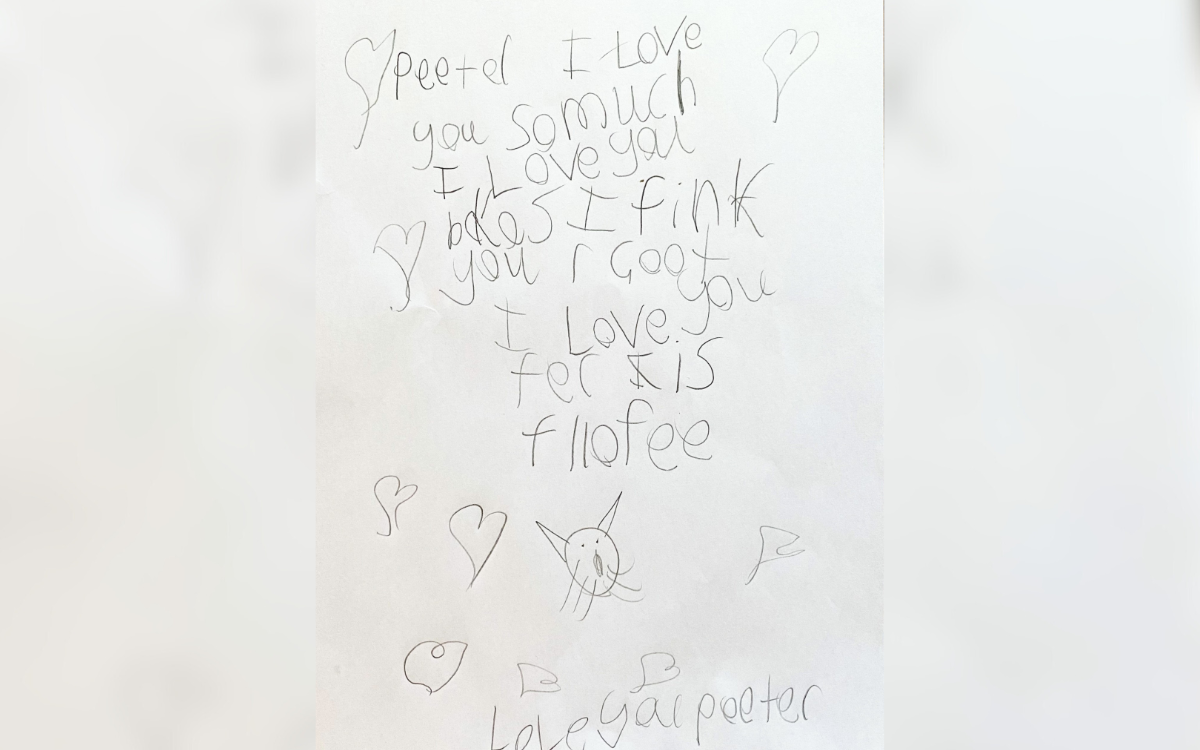 peeter I Love
you so much
I Love yor
bkes I fink
you r Coot
I Love you
fer I is
fllofee
Love yor peeter